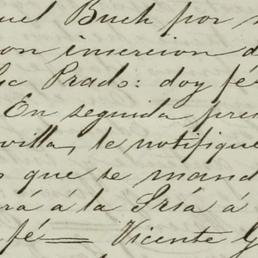 uel Buch por
con insercion d
Prado: doy fé
En seguida pre
villa, le notifique
que se mand
rá á la Sría á
fé — Vicente G